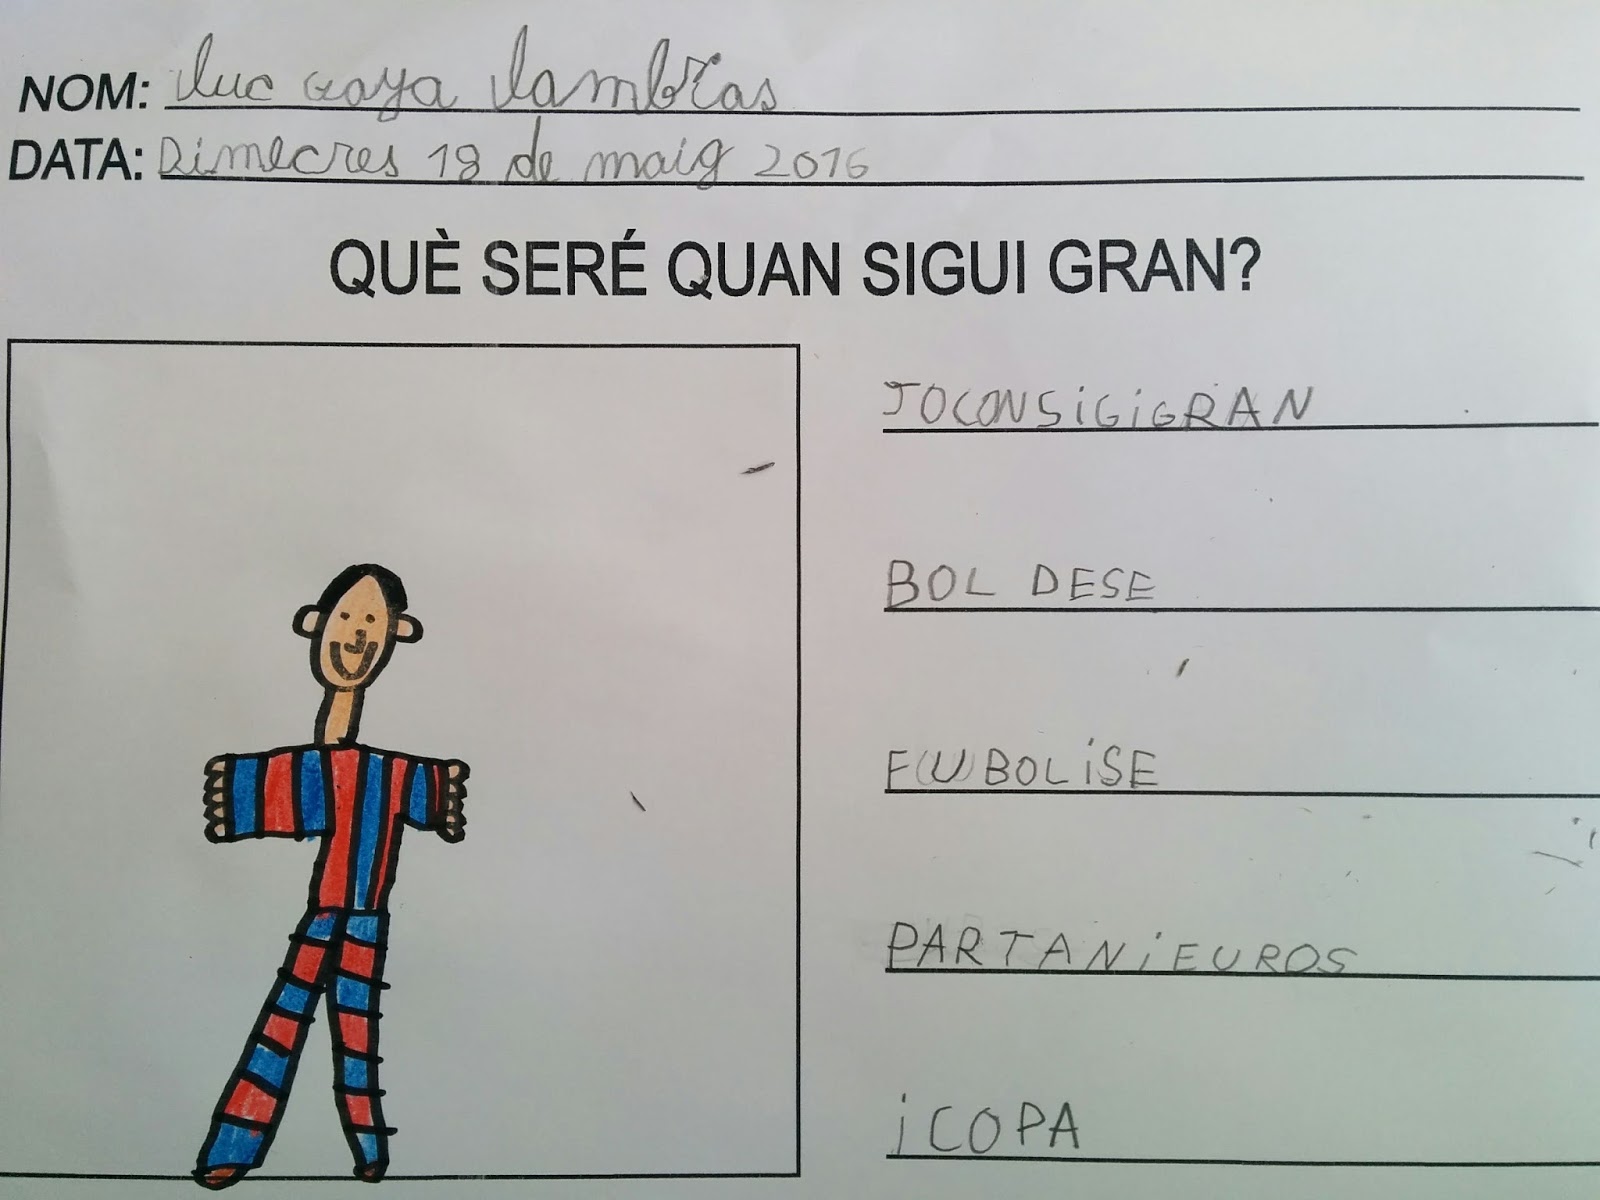 NOM: lluc Gaya lambras
DATA: Dimecres 18 de maig 2016
QUÈ SERÉ QUAN SIGUI GRAN?
JOCONSiGiGRAN
BOL DESE
FUBOLiSE
PARTANiEUROS
iCOPA